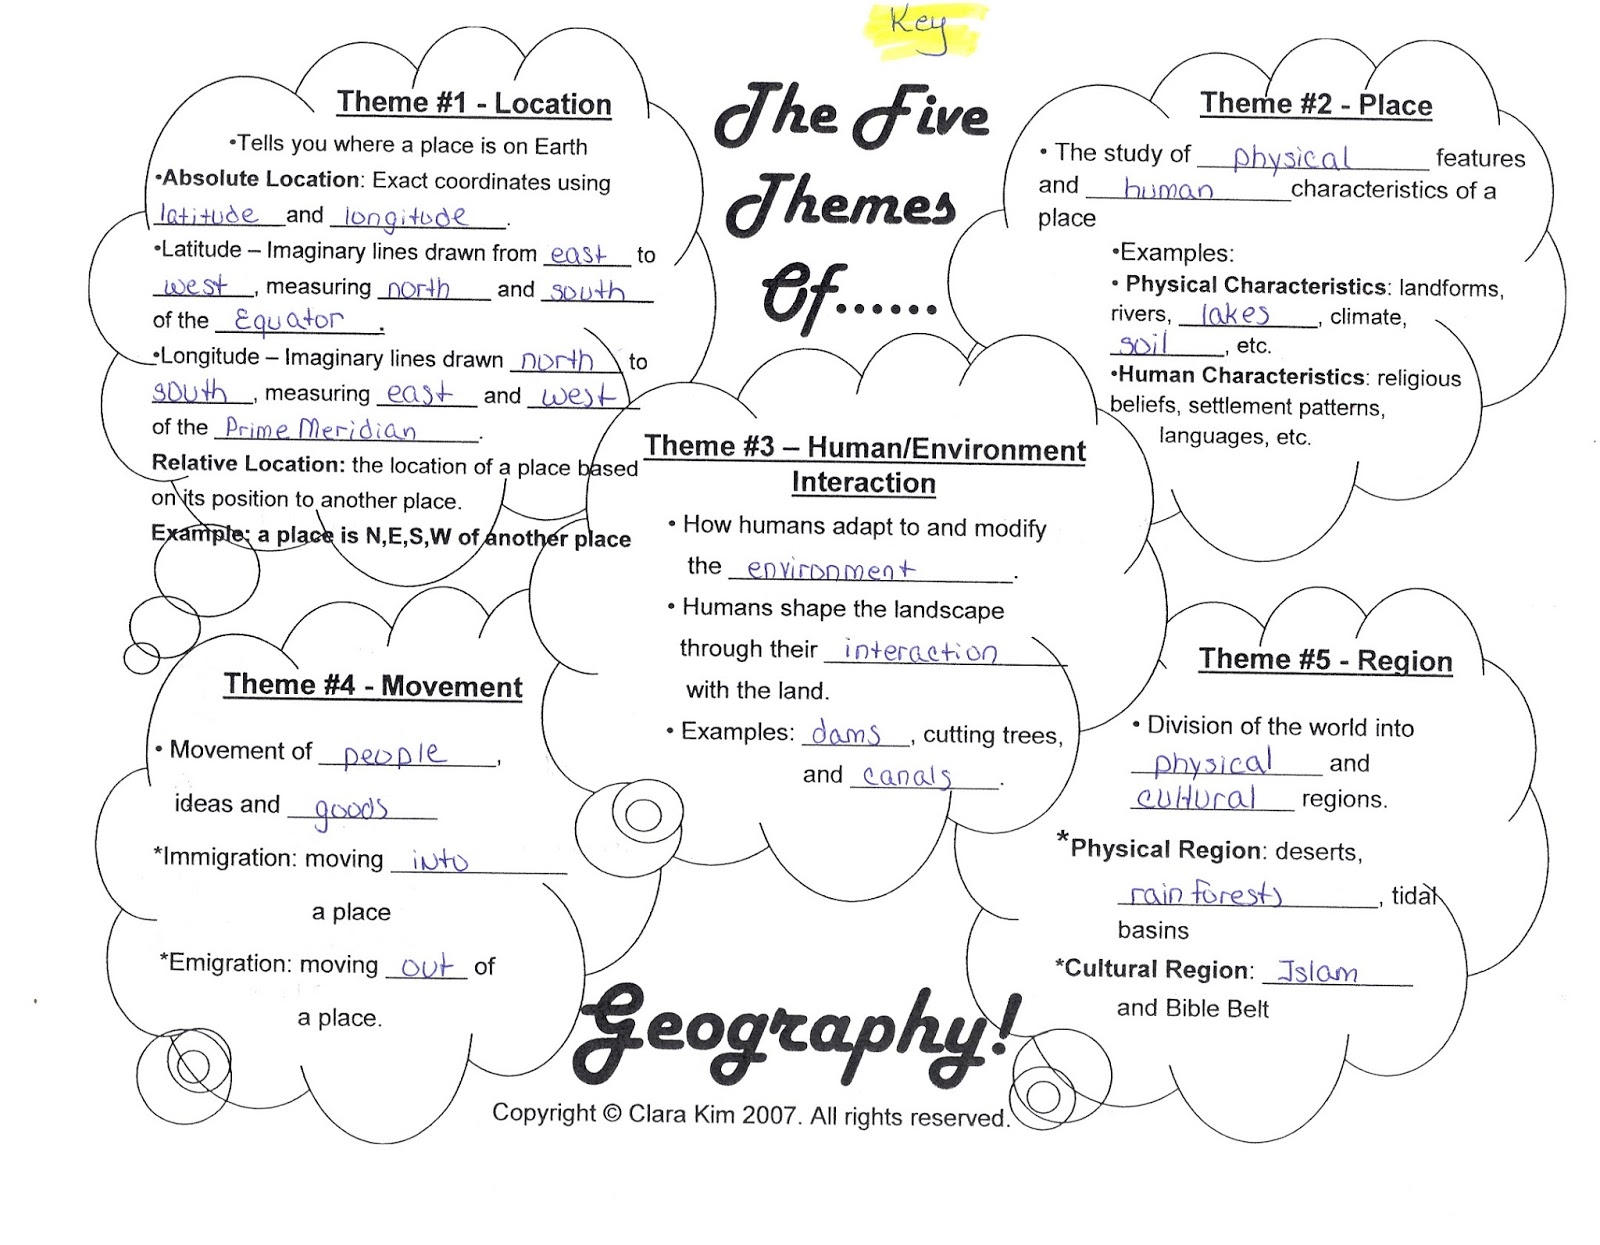 Key
The Five
Themes
Of......
Theme #1 - Location
•Tells you where a place is on Earth
•Absolute Location: Exact coordinates using
latitude and longitude.
•Latitude – Imaginary lines drawn from east to
west, measuring north and south
of the Equator.
•Longitude – Imaginary lines drawn north to
south, measuring east and west
of the Prime Meridian.
Relative Location: the location of a place based
on its position to another place.
Example: a place is N,E,S,W of another place
Theme #2 - Place
• The study of physical features
and human characteristics of a
place
•Examples:
• Physical Characteristics: landforms,
rivers, lakes, climate,
soil, etc.
•Human Characteristics: religious
beliefs, settlement patterns,
languages, etc.
Theme #3 – Human/Environment
Interaction
• How humans adapt to and modify
the environment.
• Humans shape the landscape
through their interaction
with the land.
• Examples: dams, cutting trees,
and canals.
Theme #4 - Movement
• Movement of people,
ideas and goods
*Immigration: moving into
a place
*Emigration: moving out of
a place.
Theme #5 - Region
• Division of the world into
physical and
cultural regions.
*Physical Region: deserts,
rain forests, tidal
basins
*Cultural Region: Islam
and Bible Belt
Geography!
Copyright © Clara Kim 2007. All rights reserved.